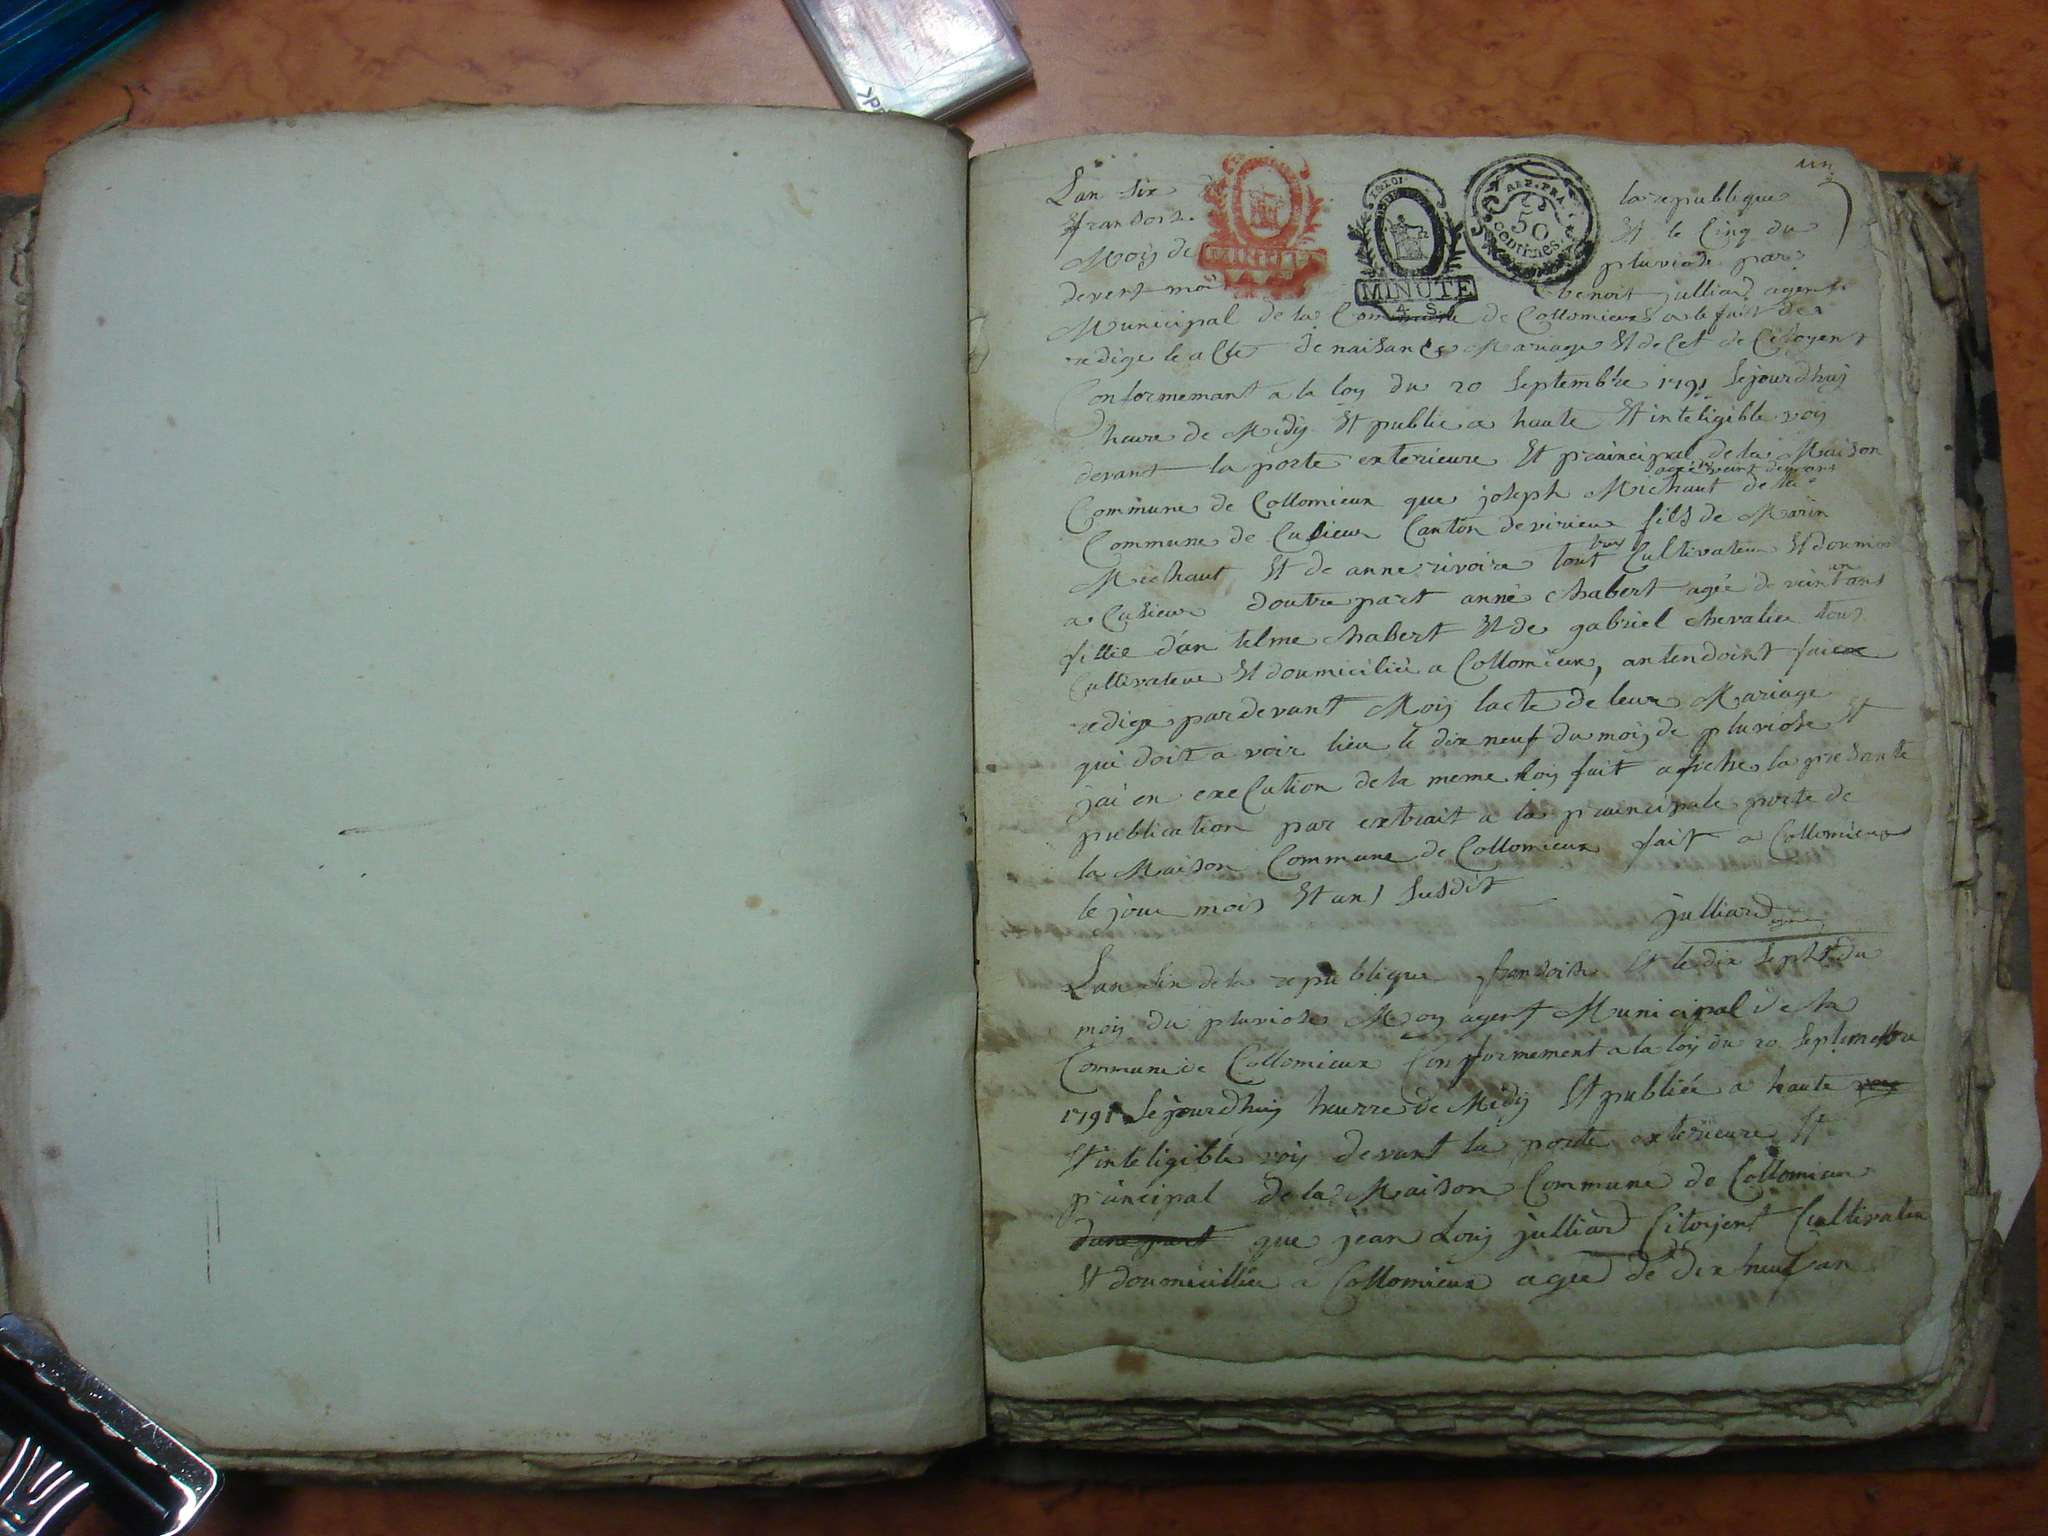 un
Lan six la republique
fransois Et le Cinq du
Mois de pluviose par
devent moi benoit julliard agent
Municipal de la Commune de Collomieux a le fait de
redige le acte de naisance Mariage Et decet de Citoyent
Conformemant a la loy du 20 Septembre 1791 Sejourdhuj
heure de Midy Et publie a haute Et inteligible voy
devant la porte exterieure Et praincipal de la Maison
Commune de Collomieux que joseph Michaut de la
Commune de Cusieux Canton de virieux fils de Marin
Michaut Et de anne rivoire tout Cultivateur Et doumici
a Cusieux doutre part anne Chabert agée de veint un ans
fillie dantelme Chabert Et de gabriel Chevalier tous
Cultivateur Et doumicilié a Collomieux, antendoint faire
redige pardevant Moy lacte de leur Mariage
qui doit a voir lieu le dix neuf du mois de pluviose Et
jai en exeCution de la meme loy fait afiche la presante
publication par extrait a la praincipale porte de
la Maison Commune de Collomieux fait a Collomieux
le jour mois Et ans Susdit
julliard
Lan Six de la republique fransois Et le dix Sept du
mois du pluviose Moy agent Municipal de la
Commune de Collomieux Conformement a la loy du 20 Septembre
1791 Sejourdhuy heurre de Midy Et publiée a haute voy
Et inteligible voy devant la porte exterieure Et
principal de la Maison Commune de Collomieux
dune part que jean Louis julliard Citoyent Cultivateur
Et doumicillie a Collomieux agée de dix neuf an
REP. FRA.
50
centimes
MINUTE
A. S.